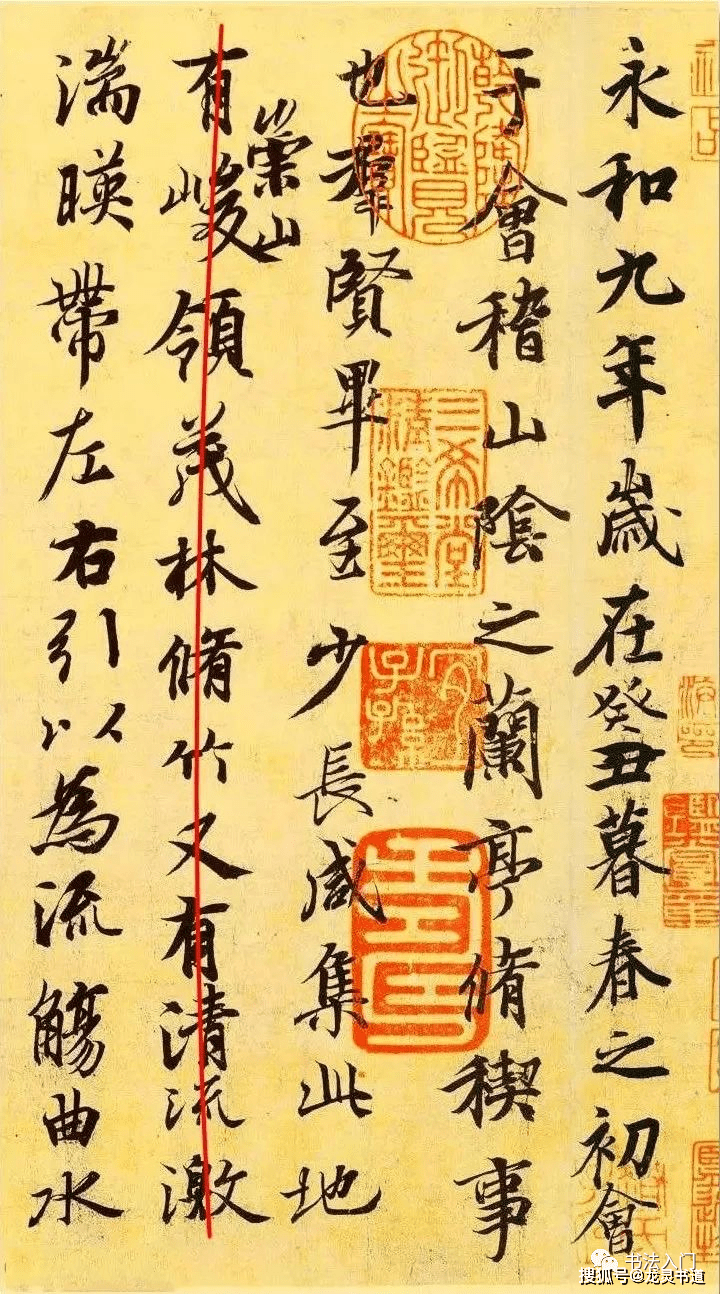 永和九年歲在癸丑暮春之初會
于會稽山陰之蘭亭脩稧事
也羣賢畢至少長咸集此地
有崇山峻領茂林脩竹又有清流激
湍暎帶左右引以為流觴曲水
乾隆御覽之寶
三希堂精鑑璽
宜子孫
书法入门
搜狐号@龙灵书道